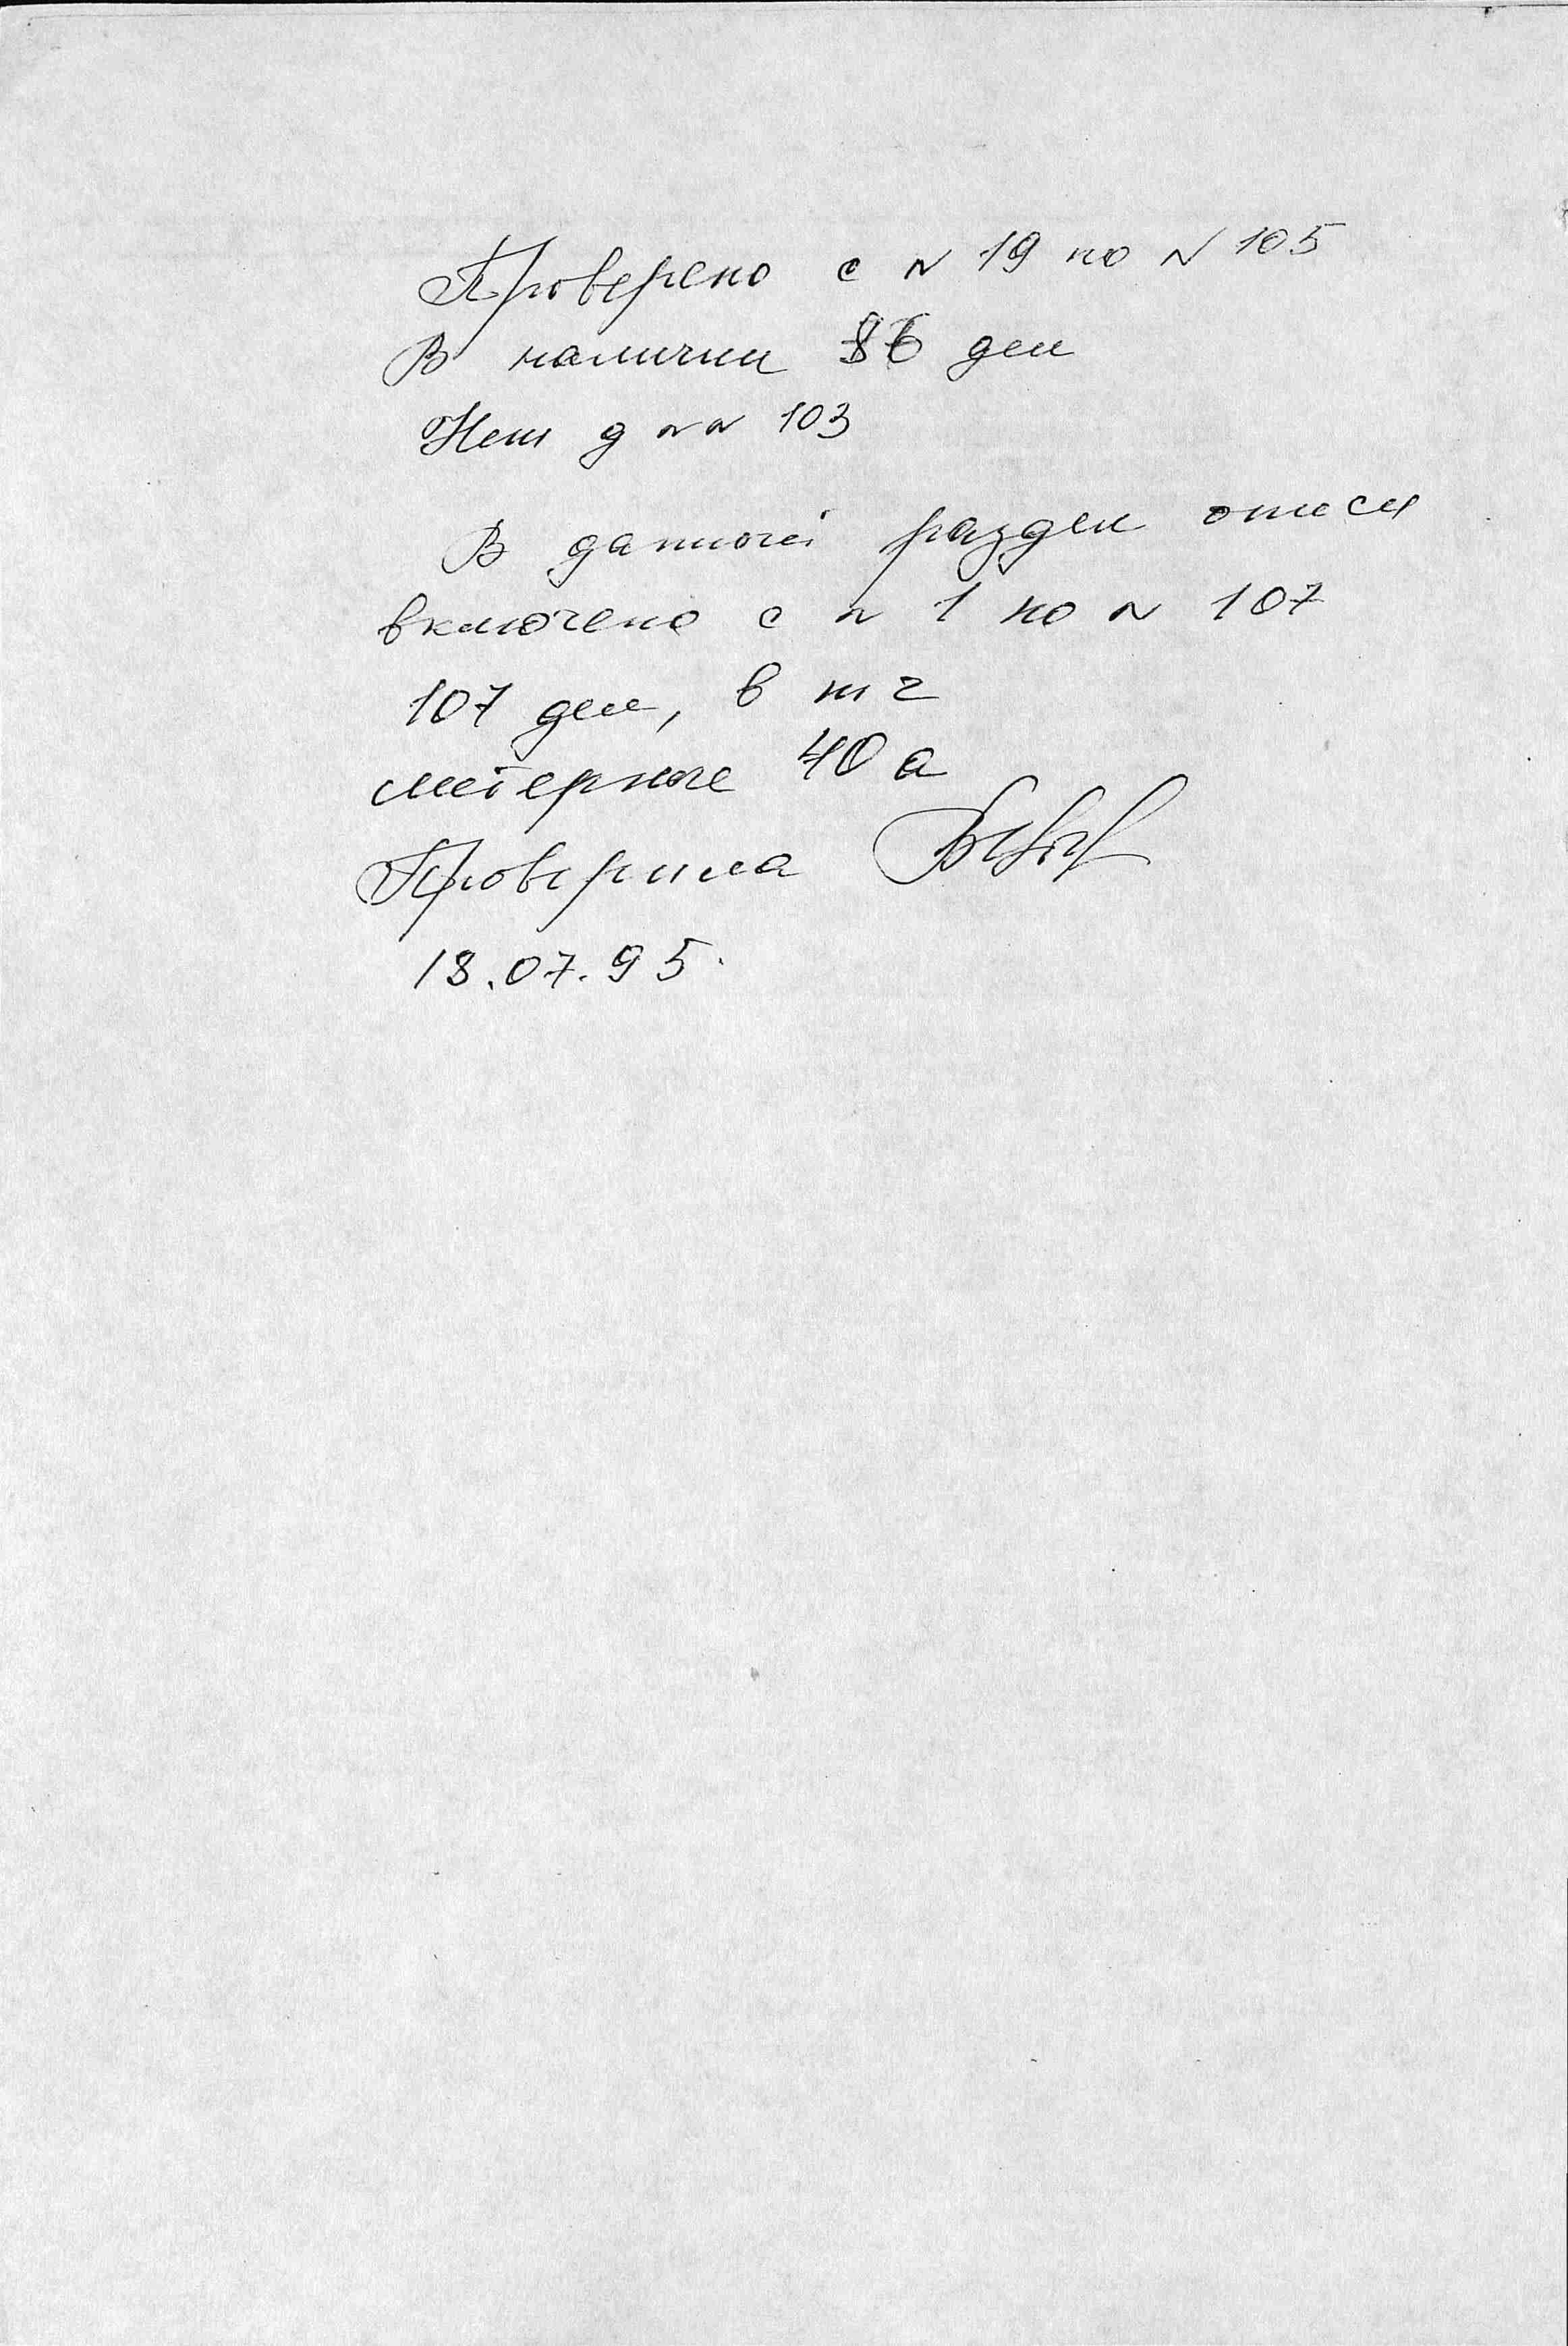 Проверено с N 19 по N 105
В наличии 86 дел
Нет д NN 103
В данной раздел описи
включено с N 1 по N 107
107 дел, в т ч
литерные 40 а
Проверила
18.07.95.